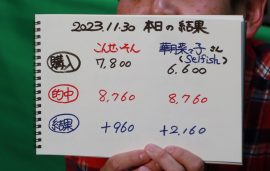 2023.11.30 本日の結果
こんせーそん 華月菜々子さん
(Selfish)
購入 7,800 6,600
的中 8,760 8,760
結果 +960 +2,160